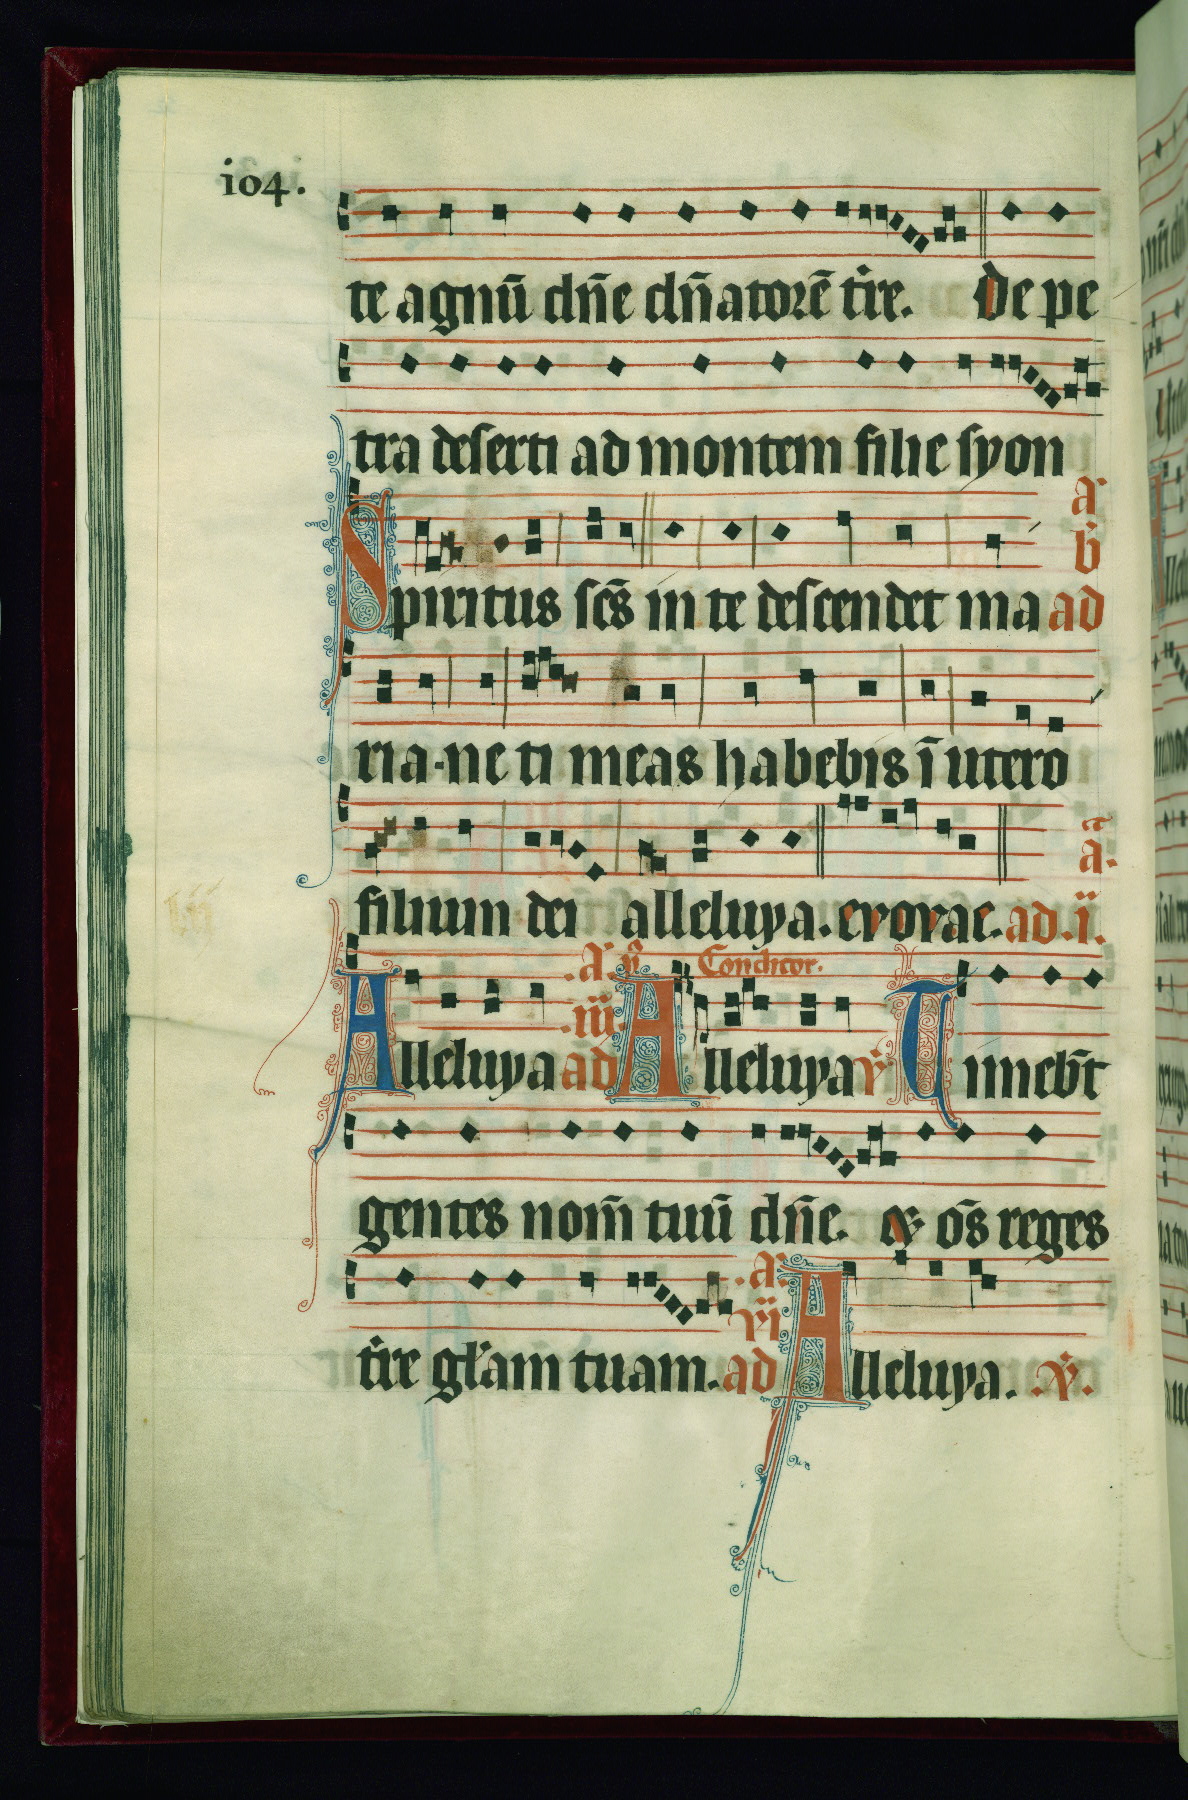 i04.
te agnū dn̄e dn̄atorē tr̄re. De pe
tra deserti ad montem filie syon
a
b
Spiritus sc̄s in te descendet ma ad
ria. ne timeas habebis ī utero
a
a.
filium dei alleluya. evovae. ad .ii.
.a. Conditor.
.iii.
Alleluya ad Alleluya v̇ Timeb̄t
gentes nom̄ tuū dn̄e. & om̄s reges
.a.
vi
tr̄re gl̄am tuam. ad Alleluya. .v̇.